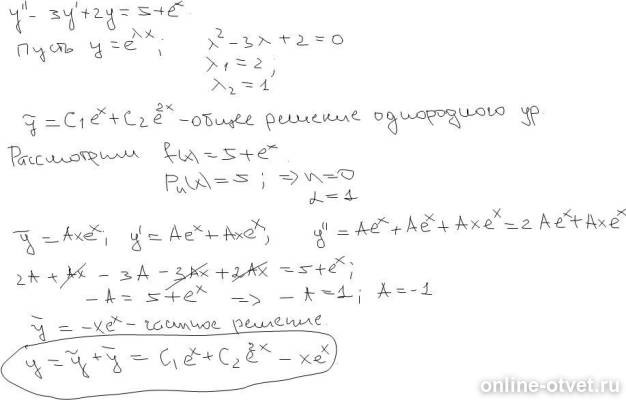 y'' - 3y' + 2y = 5 + eˣ
Пусть y = e^λx; λ² - 3λ + 2 = 0
λ₁ = 2;
λ₂ = 1
ỹ = C₁eˣ + C₂e²ˣ - общее решение однородного ур.
Рассмотрим f(x) = 5 + eˣ.
Pₙ(x) = 5; => n = 0
α = 1
ȳ = Axeˣ; y' = Aeˣ + Axeˣ; y'' = Aeˣ + Aeˣ + Axeˣ = 2Aeˣ + Axeˣ
2A + Ax - 3A - 3Ax + 2Ax = 5 + eˣ;
-A = 5 + eˣ => -A = 1; A = -1
ȳ = -xeˣ - частное решение.
y = ỹ + ȳ = C₁eˣ + C₂e²ˣ - xeˣ
online-otvet.ru